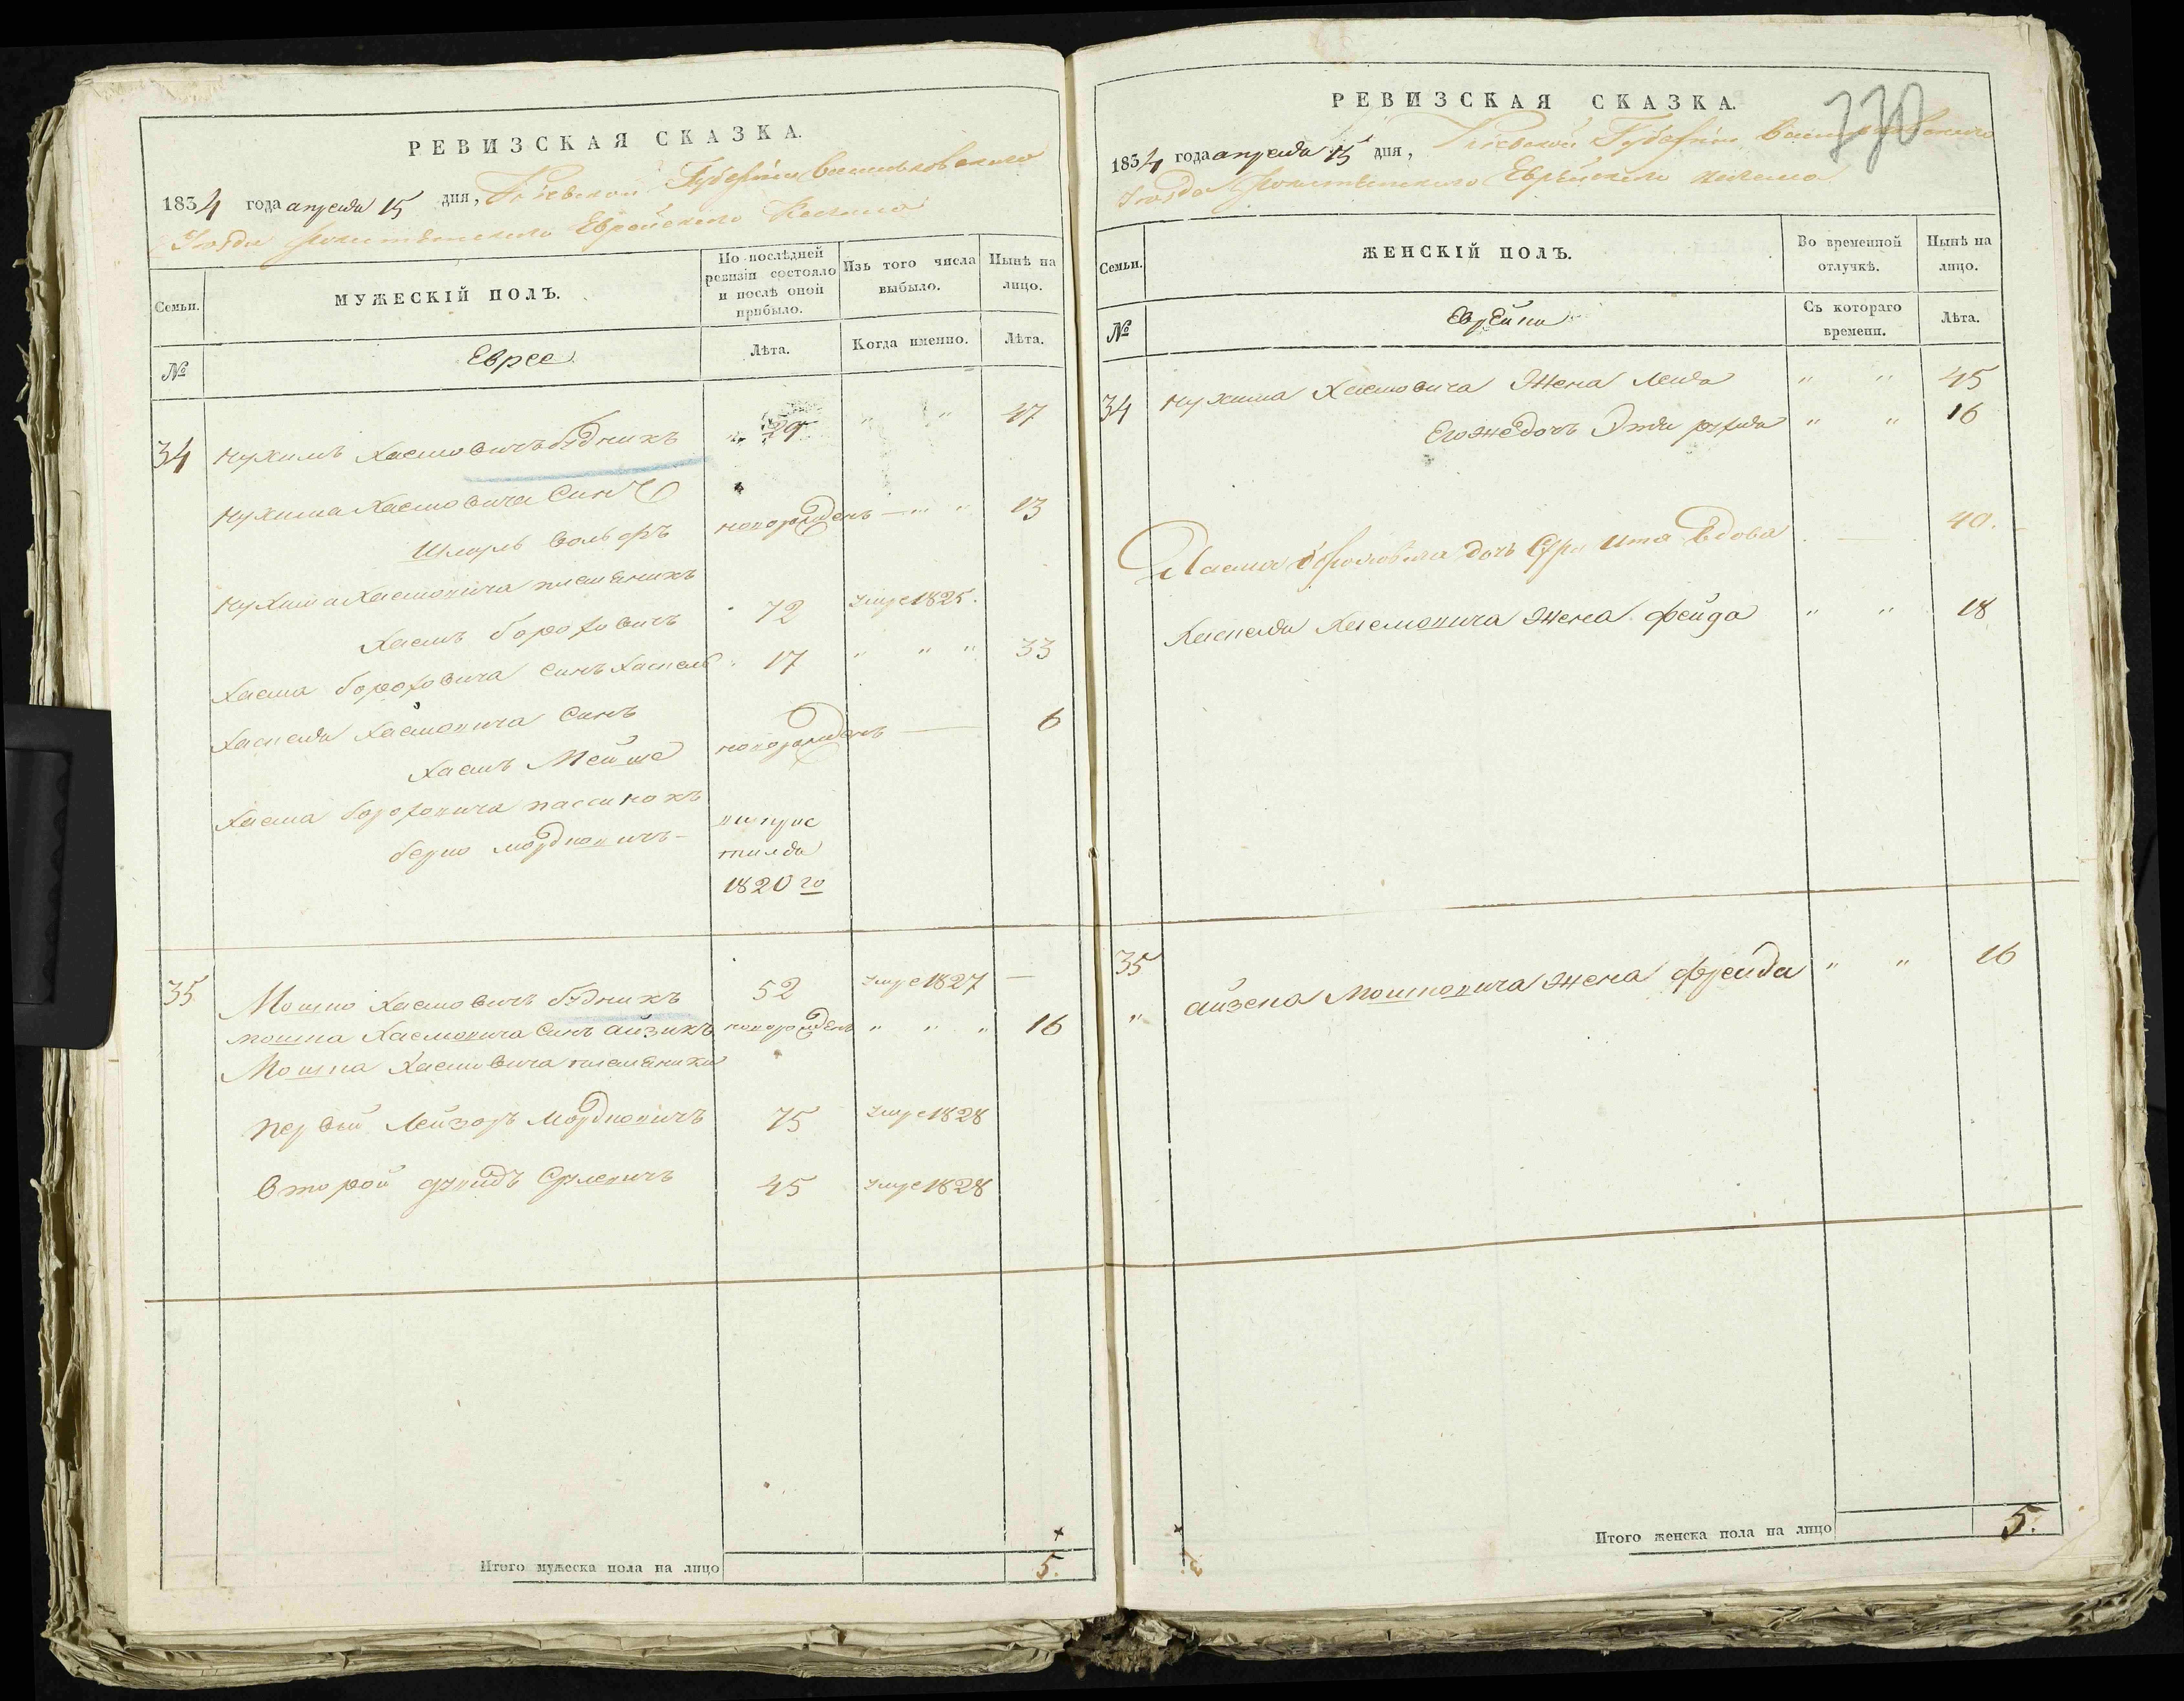 РЕВИЗСКАЯ СКАЗКА.
1834 года апреля 15 дня, Кіевской Губерніи Васильковского
Уезда Еврейского Кагала
Семьи.
МУЖЕСКІЙ ПОЛЪ.
По послѣдней ревизіи состояло и послѣ оной прибыло.
Изъ того числа выбыло.
Нынѣ на лицо.
№
Еврее
Лѣта.
Когда именно.
Лѣта.
34 Нухимъ Хаемовичъ Будникъ " 29 " " 47
Нухима Хаемовича Синъ
Шмуль Вольфъ новорожденъ — " " 13
Нухима Хаемовича племеникъ
Хаемъ Бороховичъ 72 умре 1825.
Хаема Бороховича синъ Хаскель 17 " " " 33
Хаскеля Хаемовича Синъ
Хаемъ Мейше новорожденъ — 6
Хаема Бороховича пассинокъ
Берко Мордковичъ —
1820 го
35 Мошко Хаемовичъ Будникъ 52 умре 1827 —
Мошка Хаемовича Синъ Айзикъ новорожденъ " " " 16
Мошка Хаемовича племеники
Первый Лейзоръ Мордковичъ 75 умре 1828
Второй Срулевичъ 45 умре 1828
Итого мужеска пола на лицо 5.
РЕВИЗСКАЯ СКАЗКА.
330
1834 года апреля 15 дня, Кіевской Губерніи Васильковского
Уезда Еврейского Кагала
Семьи.
ЖЕНСКІЙ ПОЛЪ.
Во временной отлучкѣ.
Нынѣ на лицо.
№
Еврейки
Съ котораго времени.
Лѣта.
34 Нухима Хаемовича Жена Лея " " 45
Его же дочь Эти " " 16
Хаема дочь Ита Вдова — 40.
Хаскеля Хаемовича Жена Фейга " " 18
35
" Айзека Мошковича Жена Фрейда " " 16
Итого женска пола на лицо 5.